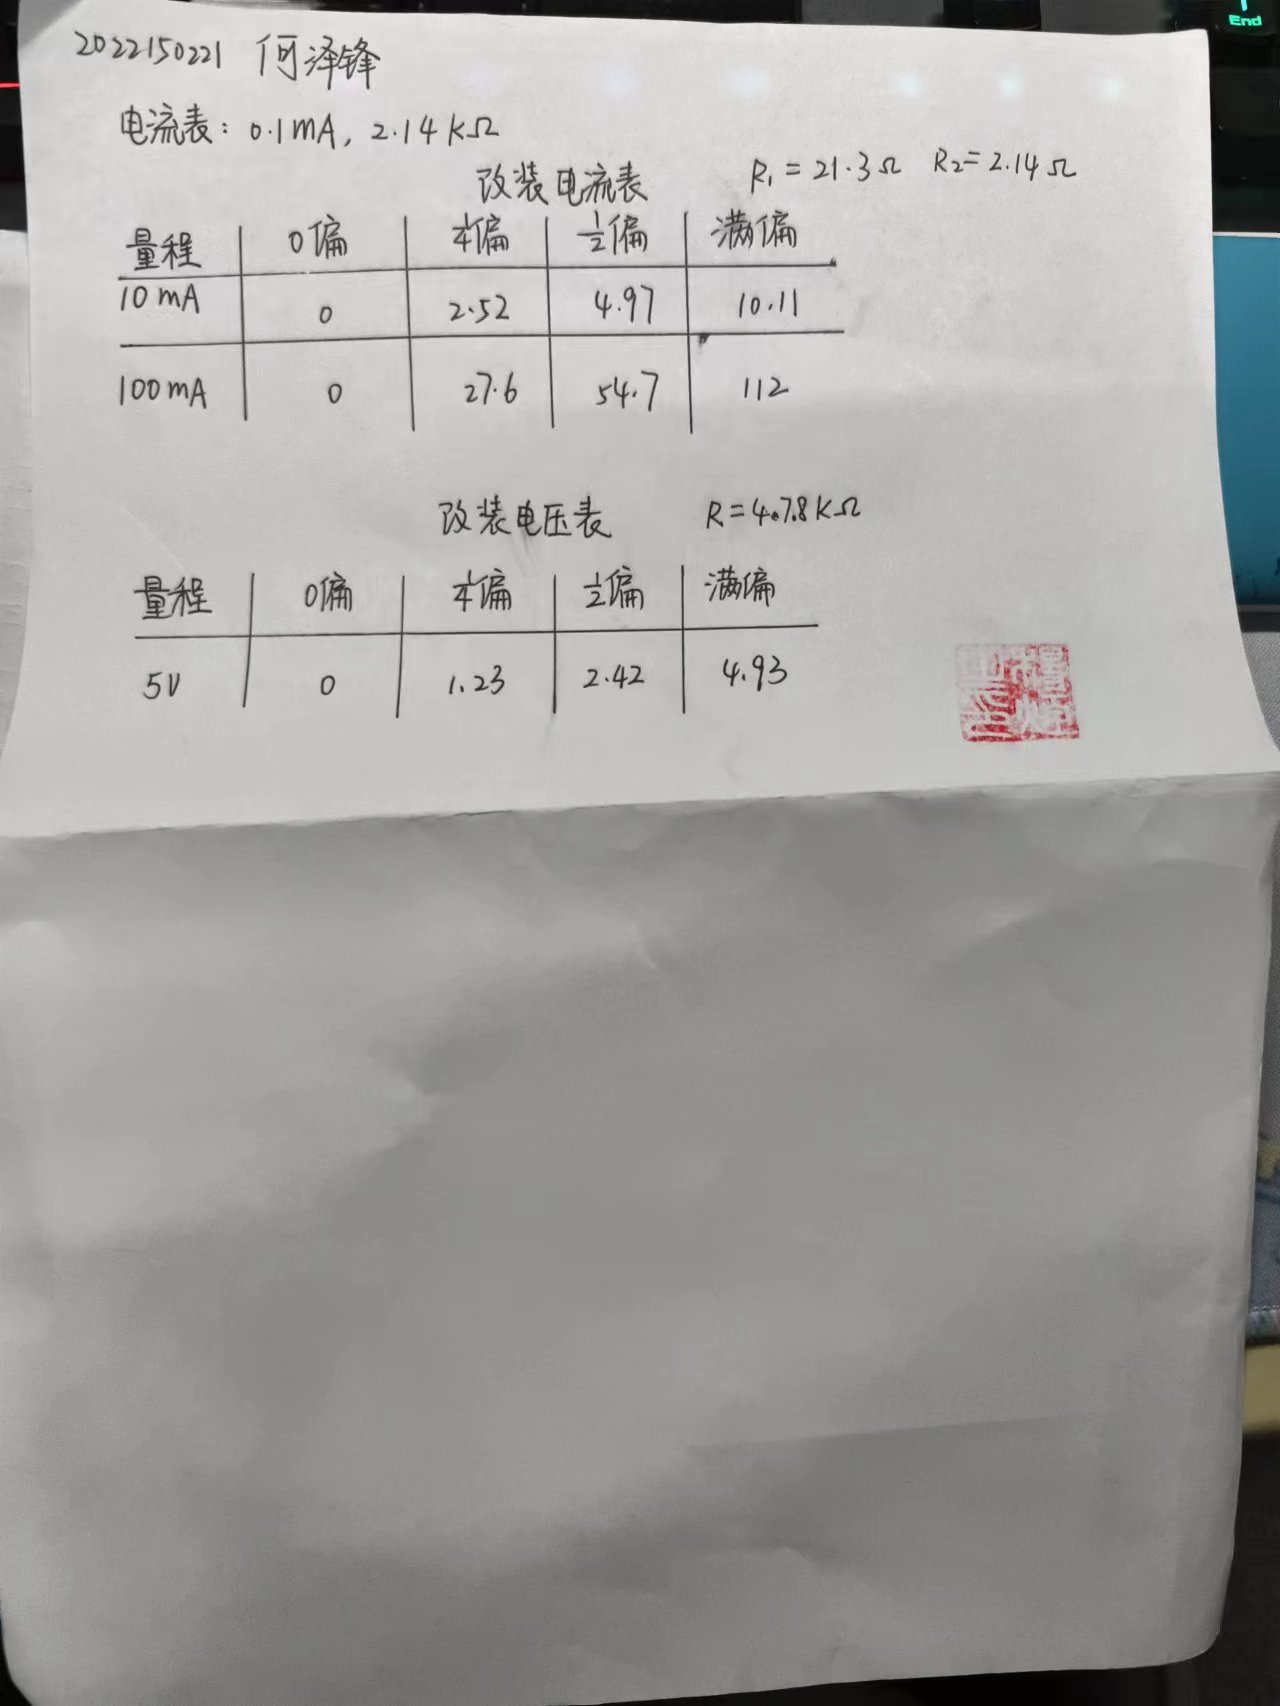 End
2022150221 何泽锋
电流表：0.1mA，2.14KΩ
改装电流表 R₁=21.3Ω R₂=2.14Ω
量程 0偏 ¼偏 ½偏 满偏
10mA 0 2.52 4.97 10.11
100mA 0 27.6 54.7 112
改装电压表 R=47.8KΩ
量程 0偏 ¼偏 ½偏 满偏
5V 0 1.23 2.42 4.93